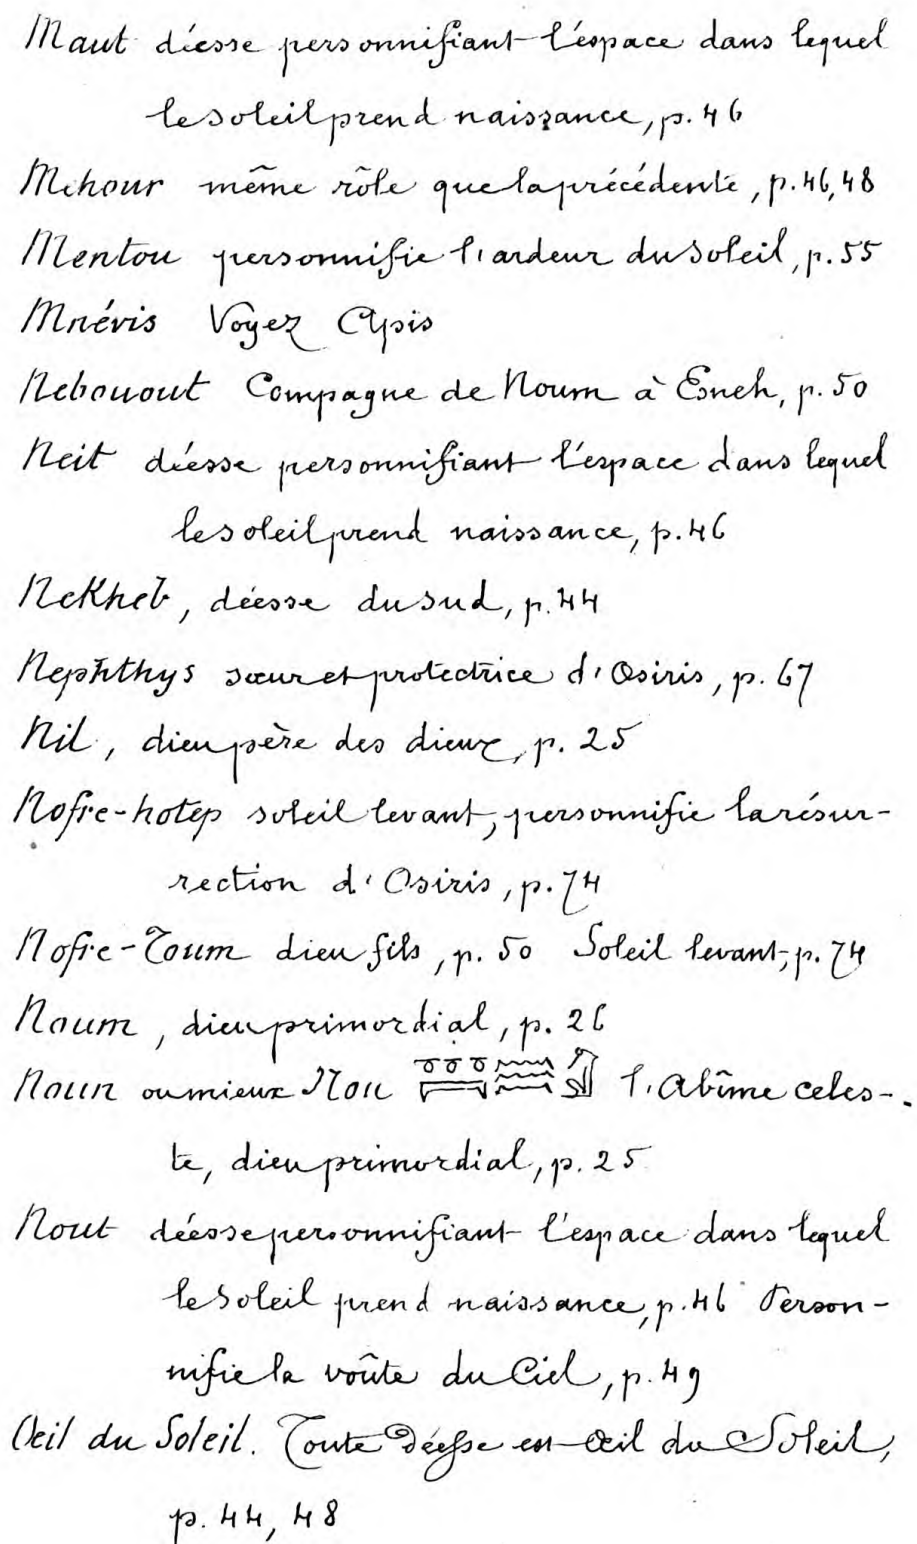 Maut déesse personnifiant l'espace dans lequel
le soleil prend naissance, p. 46
Mehour même rôle que la précédente, p. 46, 48
Mentou personnifie l'ardeur du soleil, p. 55
Mnévis Voyez Apis
Nebouout Compagne de Noum à Esneh, p. 50
Neit déesse personnifiant l'espace dans lequel
le soleil prend naissance, p. 46
Nekheb, déesse du sud, p. 44
Nephthys sœur et protectrice d'Osiris, p. 67
Nil, dieu père des dieux, p. 25
Nofre-hotep soleil levant, personnifie la résur-
rection d'Osiris, p. 74
Nofre-Toum dieu fils, p. 50 Soleil levant, p. 74
Noum, dieu primordial, p. 26
Noun ou mieux Nou l'Abîme céles-
te, dieu primordial, p. 25
Nout déesse personnifiant l'espace dans lequel
le soleil prend naissance, p. 46 Person-
nifie la voûte du Ciel, p. 49
Œil du Soleil. Toute Déesse est œil du Soleil,
p. 44, 48